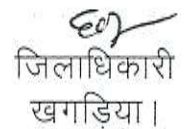 जिलाधिकारी
खगाड़िया।